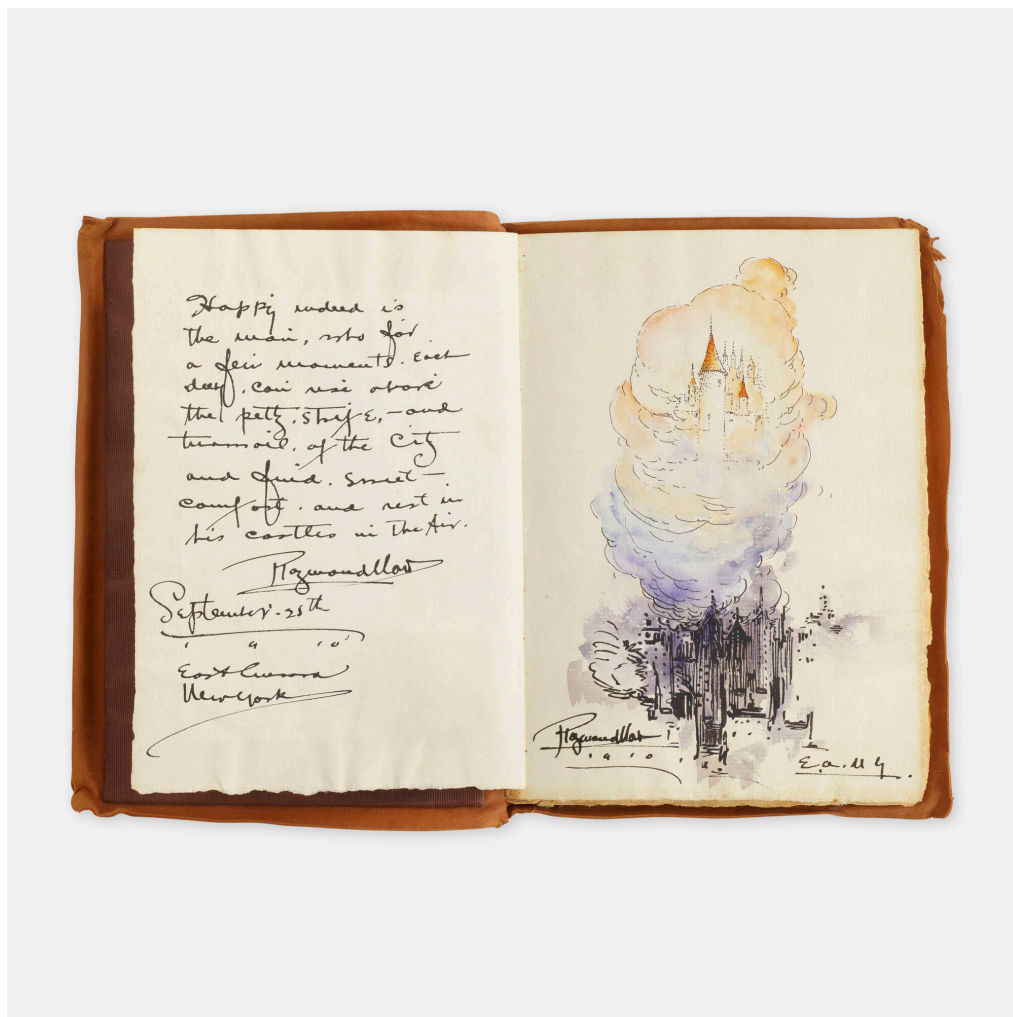 Happy indeed is
the man, who for
a few moments. Each
day. can rise above
the petty, strife, – and
turmoil. of the City
and find. sweet
comfort. and rest in
his castles in the Air.
September. 25th
1910
East Aurora
New York
1910.
E. A. N Y.